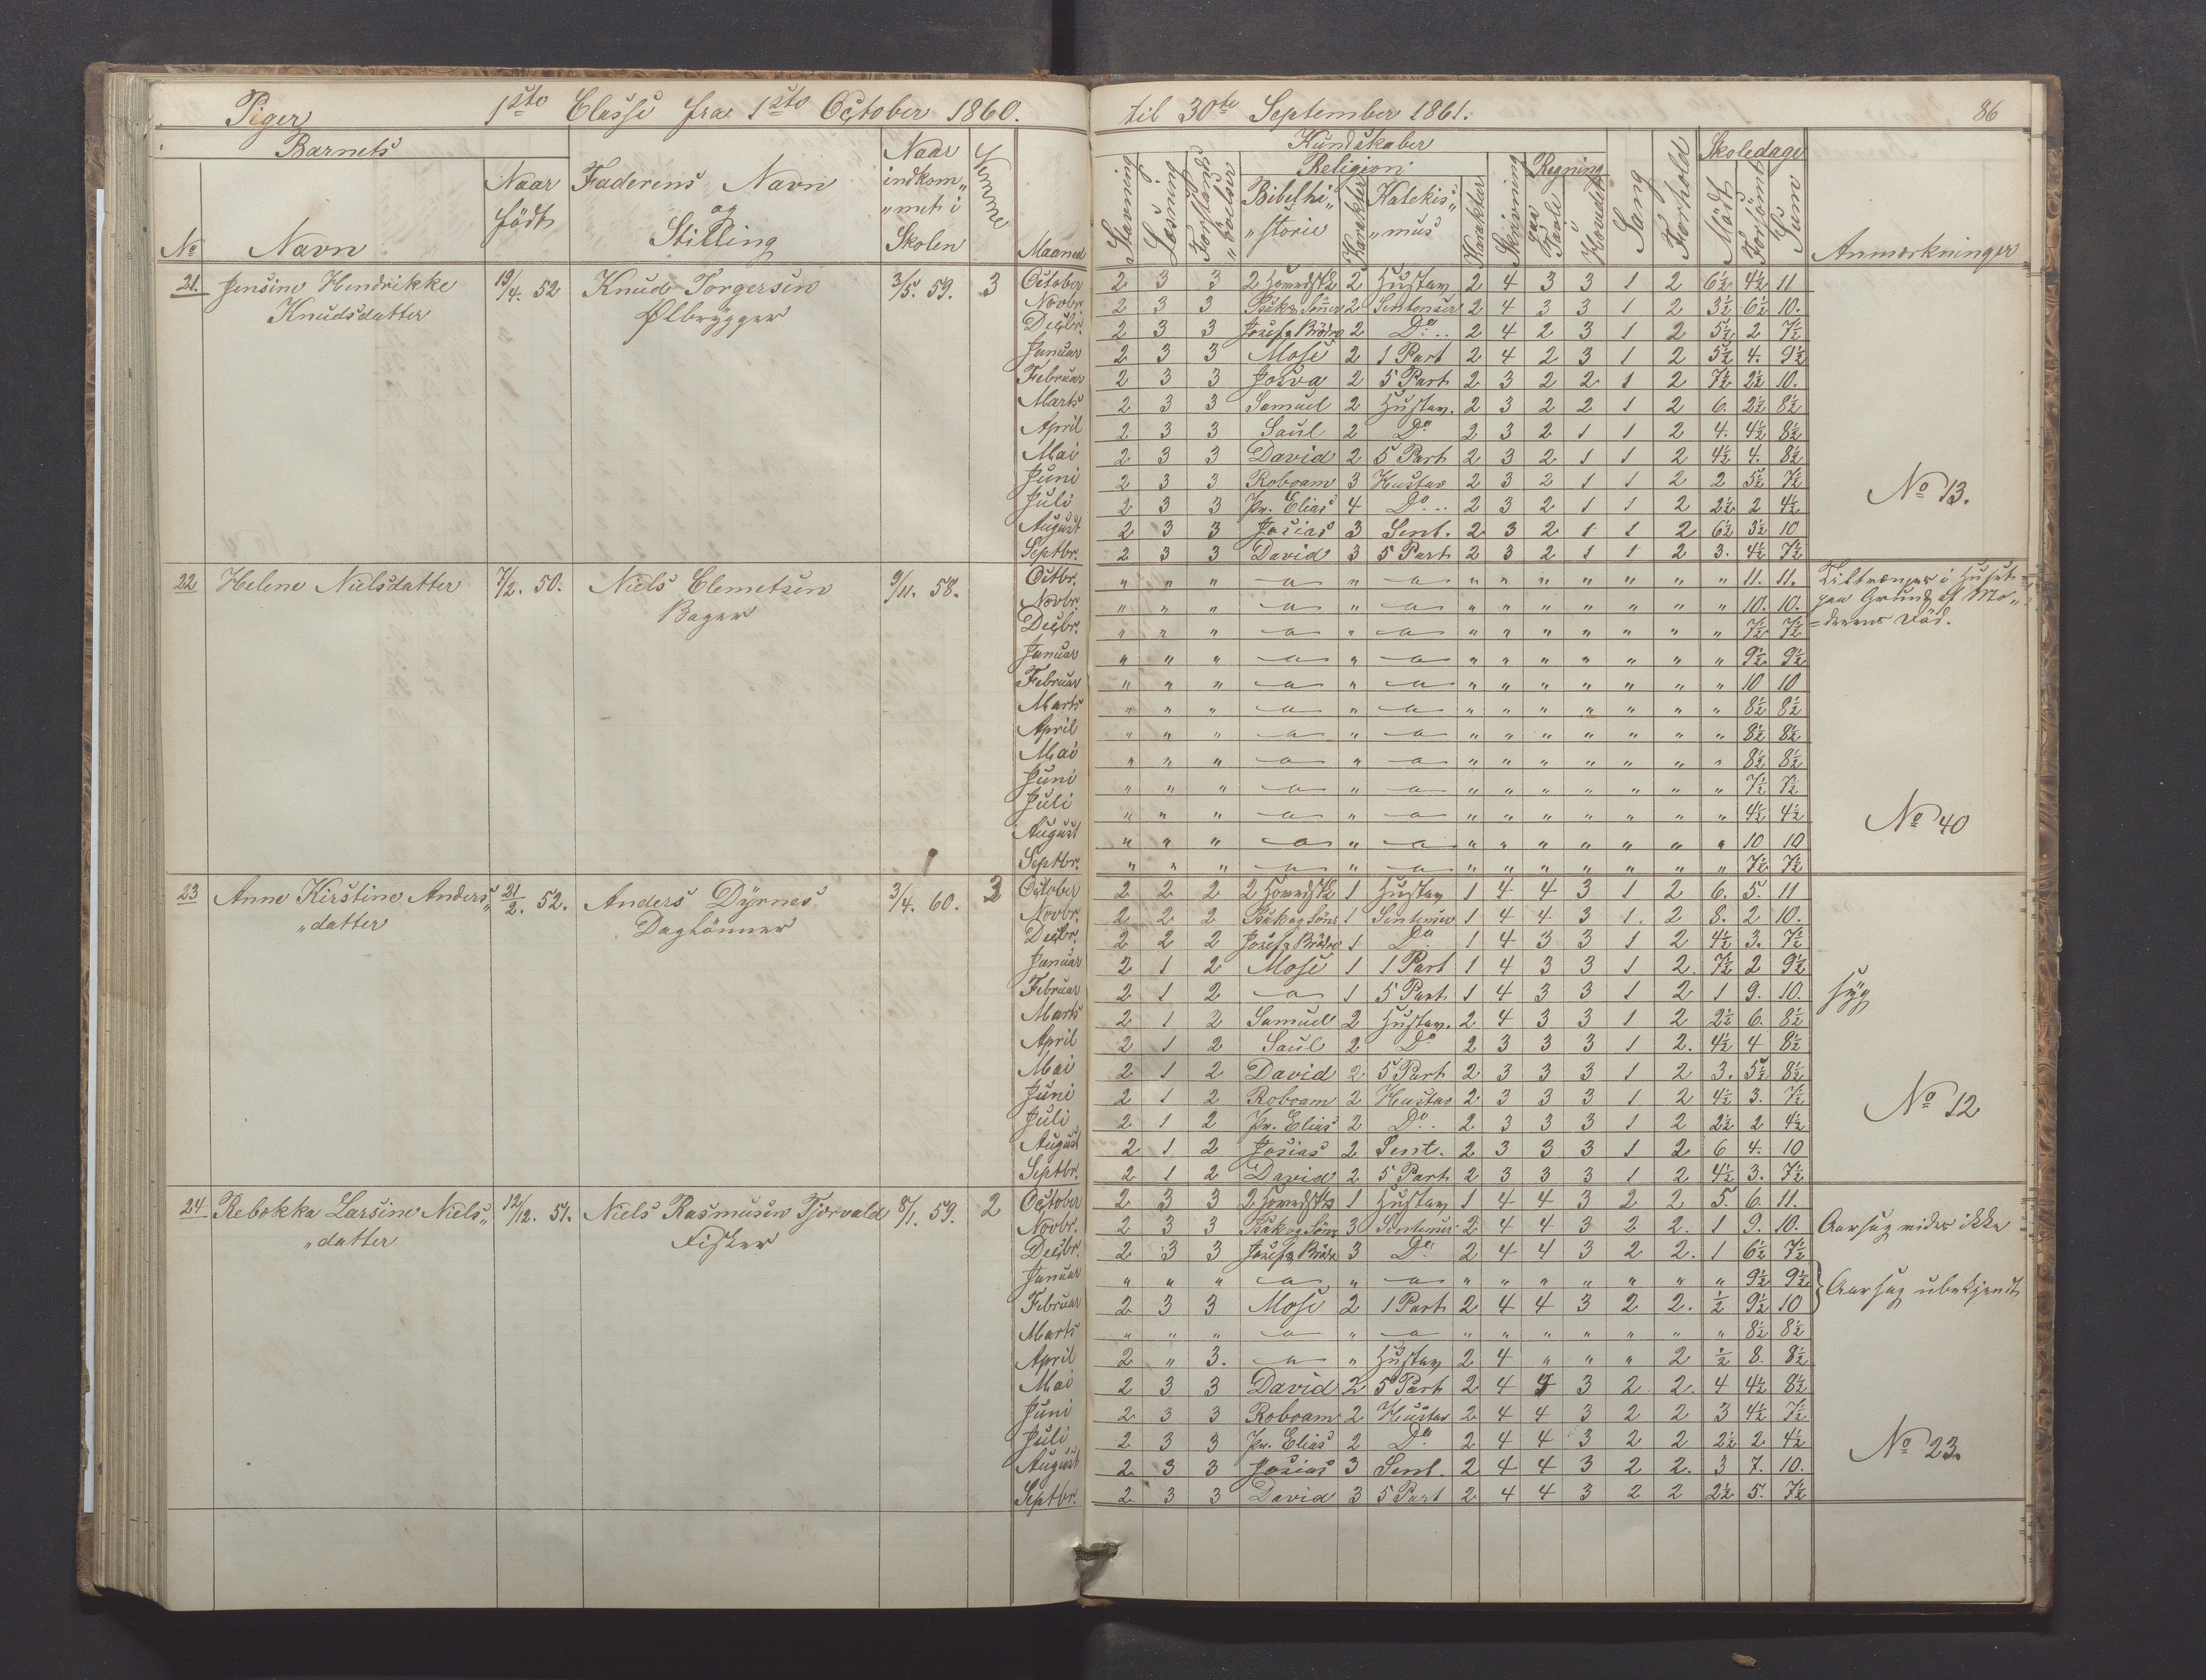 Piger 1ste Classe fra 1ste October 1860. til 30te September 1861. 86
Barnets Naar Nemme Kundskaber Skoledage
Naar Faderens Navn indkom„ Religion Regning
født og „met i Stavning Læsning Forstands „øvelser Bibelhi„ „storie Karakter Katekis„ „mus Karakter Skrivning paa Tavle i Hovedet Sang Forhold Mødt Forsømt Sum
No Navn Stilling Skolen Maaned Anmærkninger
21. Jensine Hendrikke 19/4. 52 Knud Torgersen 3/5. 59. 3 October 2 3 3 2 2 2 4 3 3 1 2 6½ 4½ 11
Knudsdatter Ølbrygger Novbr. 2 3 3 Isak & Sønner 2 Sentenser 2 4 3 3 1 2 3½ 6½ 10.
Decbr. 2 3 3 Josef & Brødre 2 Do.. 2 4 2 3 1 2 5½ 2 7½
Januar 2 3 3 Mose 2 1 Part 2 4 2 3 1 2 5½ 4. 9½
Februar 2 3 3 Josva 2 5 Part 2 3 2 2 1 2 7½ 2½ 10.
Marts 2 3 3 Samuel 2 Hustav. 2 3 2 2 1 2 6. 2½ 8½
April 2 3 3 Saul 2 Do 2 3 2 1 1 2 4. 4½ 8½
Mai 2 3 3 David 2 5 Part 2 3 2 1 1 2 4½ 4. 8½
Juni 2 3 3 Roboam 3 Hustav 2 3 2 1 1 2 2 5½ 7½
Juli 2 3 3 Pr. Elias 4 Do.. 2 3 2 1 1 2 2½ 2 4½ No 13.
August 2 3 3 Josias 3 Sent. 2 3 2 1 1 2 6½ 3½ 10
Septbr. 2 3 3 David 3 5 Part 2 3 2 1 1 2 3. 4½ 7½
22 Helene Nielsdatter 7/2. 50. Niels Clemetsen 9/11. 58. Octbr. „ „ „ „ „ „ „ „ „ „ „ 11. 11. Tiltrænges i Huset
Bager Novbr. „ „ „ „ „ „ „ „ „ „ „ 10. 10. paa Grund af Mo„
Decbr. „ „ „ „ „ „ „ „ „ „ „ 7½ 7½ =derens Død.
Januar „ „ „ „ „ „ „ „ „ „ „ 9½ 9½
Februar „ „ „ „ „ „ „ „ „ „ „ 10 10
Marts „ „ „ „ „ „ „ „ „ „ „ 8½ 8½
April „ „ „ „ „ „ „ „ „ „ „ 8½ 8½
Mai „ „ „ „ „ „ „ „ „ „ „ 8½ 8½
Juni „ „ „ „ „ „ „ „ „ „ „ 7½ 7½
Juli „ „ „ „ „ „ „ „ „ „ „ 4½ 4½ No 40
August „ „ „ „ „ „ „ „ „ „ „ 10 10
Septbr. „ „ „ „ „ „ „ „ „ „ „ 7½ 7½
23 Anne Kirstine Anders„ 21/2. 52. Anders Dyrnes 3/4. 60. 3 October 2 2 2 1 1 4 4 3 1 2 6. 5. 11
„datter Daglønner Novbr. 2 2 2 Isak og Søns 1 Sentenser 1 4 4 3 1. 2 8. 2 10.
Decbr. 2 2 2 Josef & Brødre 1 Do 1 4 3 3 1 2 4½ 3. 7½
Januar 2 1 2 Mose 1 1 Part 1 4 3 3 1 2. 7½ 2 9½
Februar 2 1 2 1 5 Part 1 4 3 3 1 2 1 9. 10. syg
Marts 2 1 2 Samuel 2 Hustav. 2 4 3 3 1 2 2½ 6. 8½
April 2 1 2 Saul 2 Do 2 3 3 3 1 2. 4½ 4 8½
Mai 2 1 2 David 2 5 Part 2 3 3 3 1 2 3. 5½ 8½
Juni 2 1 2 Roboam 2 Hustav 2 3 3 3 1 2 4½ 3. 7½ No 12
Juli 2 1 2 Pr. Elias 2 Do.. 2 3 3 3 1 2 2½ 2 4½
August 2 1 2 Josias 2 Sent. 2 3 3 3 1 2 6 4. 10
Septbr. 2 1 2 David 2 5 Part 2 3 3 3 1 2 4½ 3. 7½
24 Rebekka Larsine Niels„ 12/12. 51. Niels Rasmusen Tjørvald 8/1. 59. 2 October 2 3 3 1 1 4 4 3 2 2 5. 6. 11.
„datter Fisker Novbr. 2 3 3 Isak og Søns 3 Sentenser 2 4 4 3 2 2. 1 9. 10. Aarsag vides ikke
Decbr. 2 3 3 Josef & Brødre 3 Do 2 4 4 3 2 2. 1 6½ 7½
Januar „ „ „ „ „ „ „ „ „ „ „ 9½ 9½ } Aarsag ubekjendt
Februar 2 3 3 Mose 2 1 Part 2 4 4 3 2 2. ½ 9½ 10
Marts „ „ „ „ „ „ „ „ „ „ „ 8½ 8½
April 2 „ 3. „ Hustav 2 4 „ „ „ 2 ½ 8. 8½
Mai 2 3 3 David 2 5 Part 2 4 4 3 2 2. 4 4½ 8½
Juni 2 3 3 Roboam 2 Hustav 2 4 4 3 2 2 3 4½ 7½
Juli 2 3 3 Pr. Elias 2 Do 2 4 4 3 2 2 2½ 2 4½ No 23.
August 2 3 3 Josias 3 Sent. 2 4 4 3 2 2. 3 7. 10.
Septbr. 2 3 3 David 3 5 Part 2 4 4 3 2 2 2½ 5. 7½